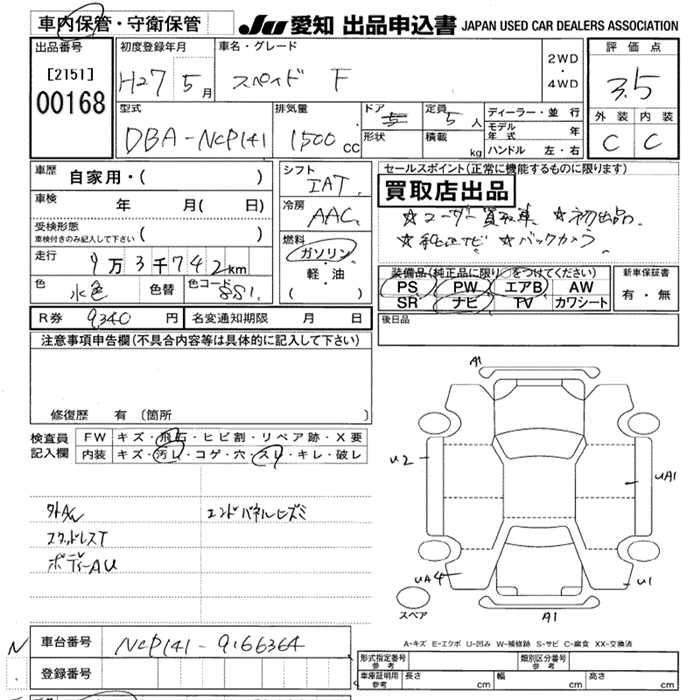 車内保管・守衛保管
JU 愛知 出品申込書 JAPAN USED CAR DEALERS ASSOCIATION
出品番号
[2151]
00168
初度登録年月
H27 5月
車名・グレード
スペイド F
2WD
・
4WD
評価点
3.5
外装 内装
C C
型式
DBA-NCP141
排気量
1500cc
ドア 5
形状
定員 5人
積載 kg
ディーラー・並行
モデル年式 年
ハンドル 左・右
車歴 自家用・( )
車検 年 月( 日)
受検形態
車検付きのみ記入して下さい ( )
走行 9万3千742km
色 水色 色替 色コード 8S1
シフト
IAT
冷房
AAC
燃料
ガソリン・
軽・油
( )
セールスポイント(正常に機能するものに限ります)
買取店出品
☆ユーザー買取車 ☆初出品
☆純正ナビ ☆バックカメラ
装備品(純正品に限り○をつけてください)
PS PW エアB AW
SR ナビ TV カワシート
新車保証書
有・無
R券 9,340円 名変通知期限 月 日
後日品
注意事項申告欄(不具合内容等は具体的に記入して下さい)
修復歴 有 〔箇所 〕
検査員記入欄
FW キズ・飛石・ヒビ割・リペア跡・X要
内装 キズ・汚レ・コゲ・穴・スレ・キレ・破レ
外A/W エンドパネルヒズミ
スタッドレスT
ボディーAU
A1
U2
UA1
UA4
U1
A1
スペア
A-キズ E-エクボ U-凹み W-補修跡 S-サビ C-腐食 XX-交換済
N 車台番号 NCP141-9166364
登録番号
形式指定番号 参考
類別区分番号 参考
車庫証明用 参考 長さ cm 幅 cm 高さ cm